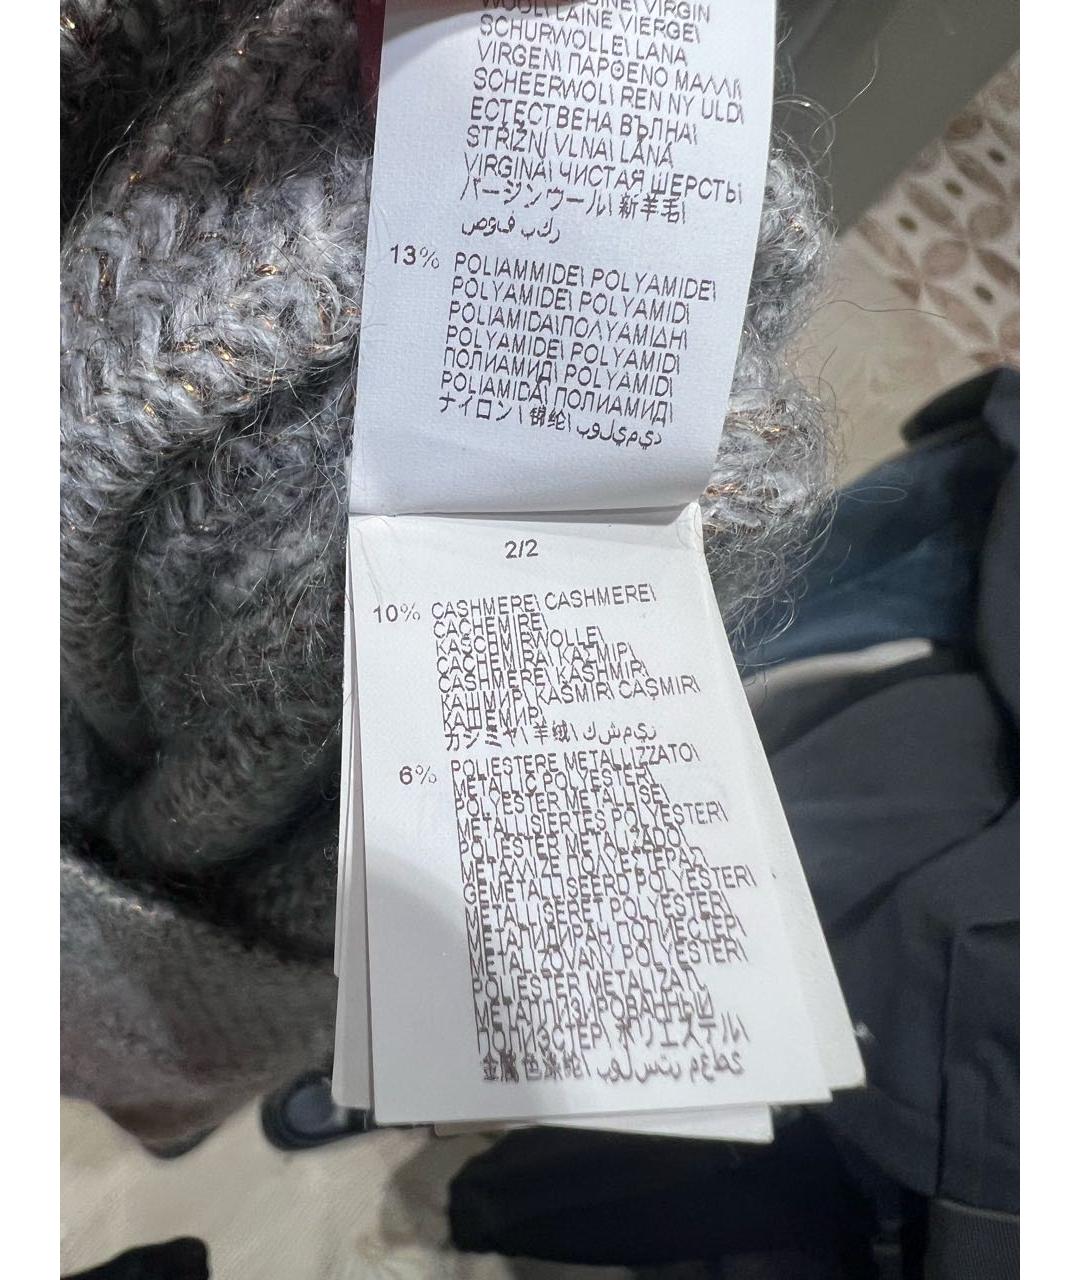 WOOL\ LAINE VIERGE\
SCHURWOLLE\ LANA
VIRGEN\ ΠΑΡΘΕΝΟ ΜΑΛΛΙ\
SCHEERWOL\ REN NY ULD\
ЕСТЕСТВЕНА ВЪЛНА\
STŘIŽNÍ VLNA\ LÂNĂ
VIRGINĂ\ ЧИСТАЯ ШЕРСТЬ\
バージンウール\ 新羊毛\
صوف بكر
13% POLIAMMIDE\ POLYAMIDE\
POLYAMIDE\ POLYAMID\
POLIAMIDA\ΠΟΛΥΑΜΙΔΗ\
POLYAMIDE\ POLYAMID\
ПОЛИАМИД\ POLYAMID\
POLIAMIDĂ\ ПОЛИАМИД\
ナイロン\ 锦纶\ بوليميد
2/2
10% CASHMERE\ CASHMERE\
CACHEMIRE\
KASCHMIRWOLLE\
CACHEMIRA\ ΚΑΣΜΙΡ\
CASHMERE\ KASHMIR\
КАШМИР\ KAŠMÍR\ CAŞMIR\
КАШЕМИР\
カシミヤ\ 羊绒\ كشميري
6% POLIESTERE METALLIZZATO\
METALLIC POLYESTER\
POLYESTER METALLISE\
METALLISIERTES POLYESTER\
POLIESTER METALIZADO\
ΜΕΤΑΛΛΙΖΕ ΠΟΛΥΕΣΤΕΡΑΣ\
GEMETALLISEERD POLYESTER\
METALLISERET POLYESTER\
МЕТАЛИЗИРАН ПОЛИЕСТЕР\
METALIZOVANÝ POLYESTER\
POLIESTER METALIZAT\
МЕТАЛЛИЗИРОВАННЫЙ
ПОЛИЭСТЕР\ ポリエステル\
金属色涤纶\